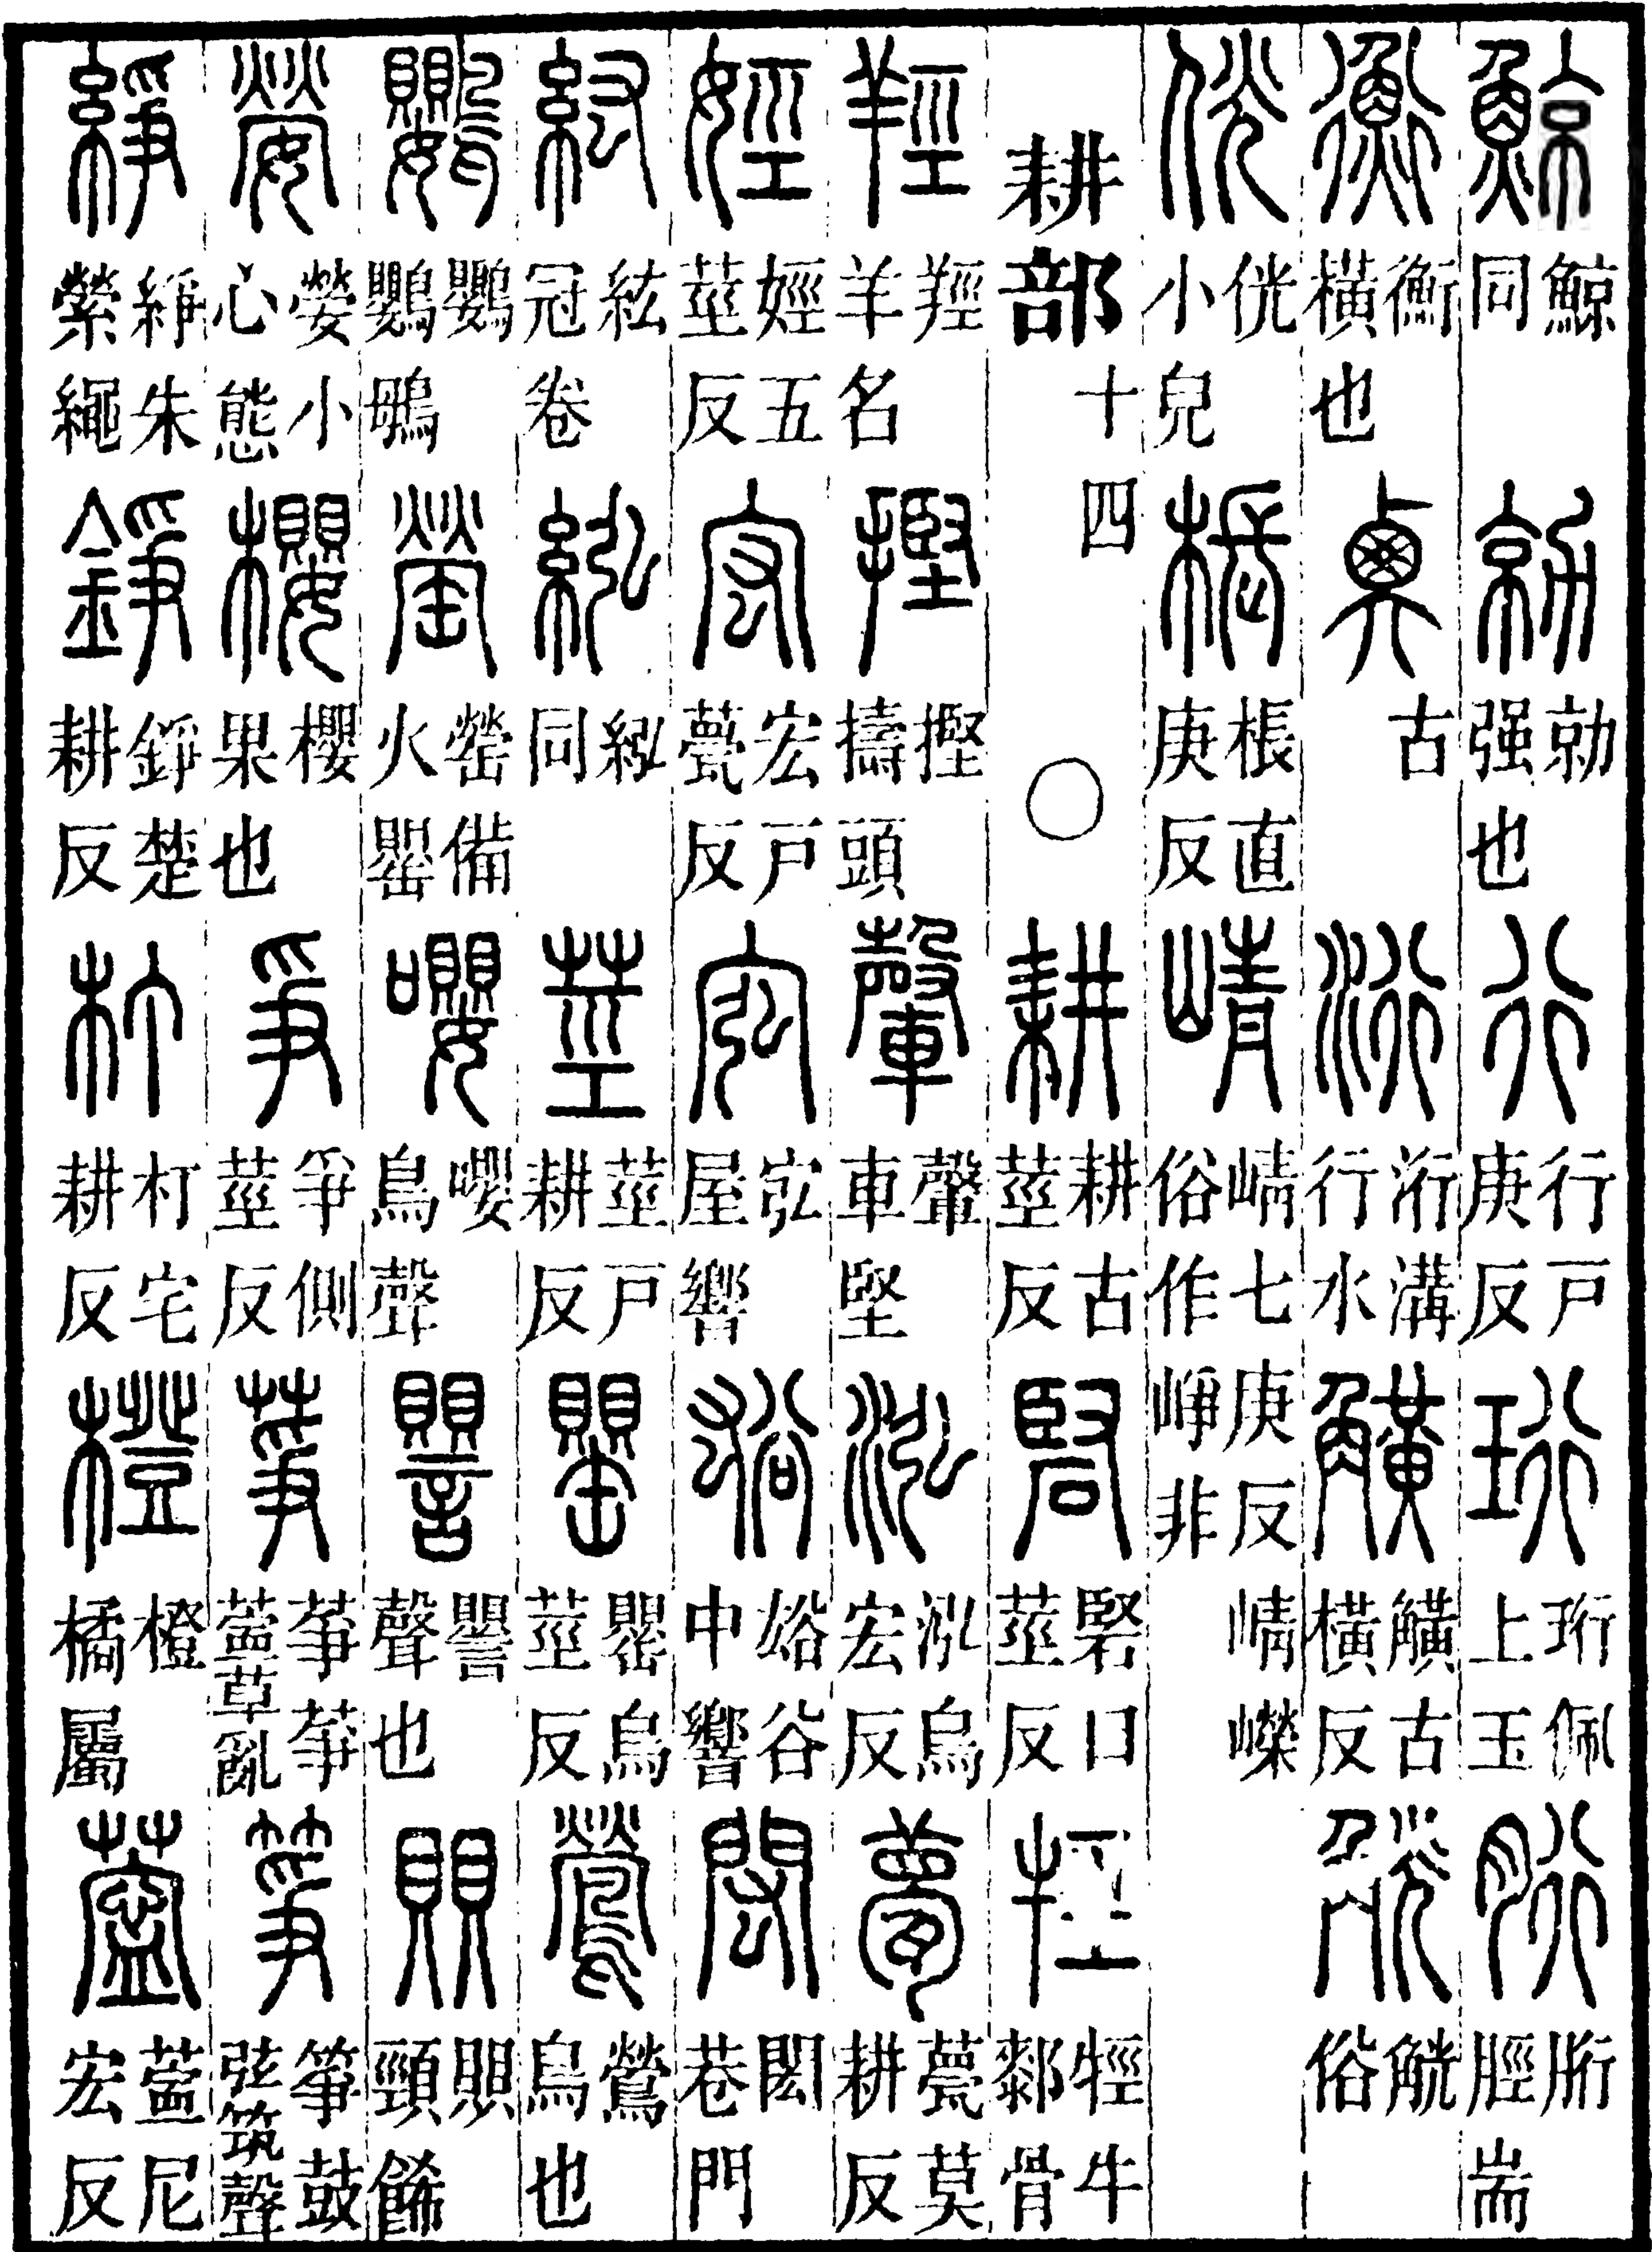 鯨 鯨同 勍 勍强也 行 行戶庚反 珩 珩佩上玉 胻 胻脛耑
衡 衡橫也 𠔃 古 洐 洐溝行水 觵 觵古橫反 觥 觥俗
侊 侊小皃 棖 棖直庚反 崝 崝七庚反崝嶸俗作崢非
耕部十四 ○ 耕 耕古莖反 硻 硻口莖反 牼 牼牛厀骨
羥 羥羊名 摼 摼擣頭 䡰 䡰車堅 泓 泓烏宏反 甍 甍莫耕反
娙 娙五莖反 宏 宏戶甍反 宖 宖屋響 谹 谹谷中響 閎 閎巷門
紘 紘冠卷 紭 紭同 莖 莖戶耕反 罌 罌烏莖反 鶯 鶯鳥也
鸚 鸚鸚䳇 罃 罃備火罌 嚶 嚶鳥聲 譻 譻聲也 賏 賏頸飾
嫈 嫈小心態 櫻 櫻果也 爭 爭側莖反 䓝 䓝䓝薴草亂 箏 箏鼓弦筑聲
綪 綪朱縈繩 錚 錚楚耕反 朾 朾宅耕反 橙 橙橘屬 薴 薴尼宏反